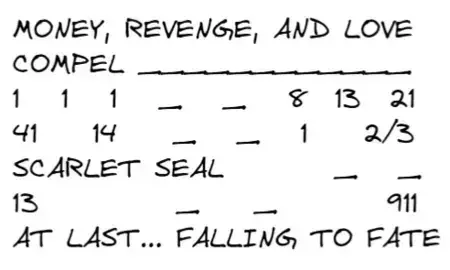 MONEY, REVENGE, AND LOVE
COMPEL _ _ _ _ _ _ _ _ _ _ _ _
1 1 1 _ _ 8 13 21
41 14 _ _ 1 2/3
SCARLET SEAL _ _
13 _ _ 911
AT LAST... FALLING TO FATE